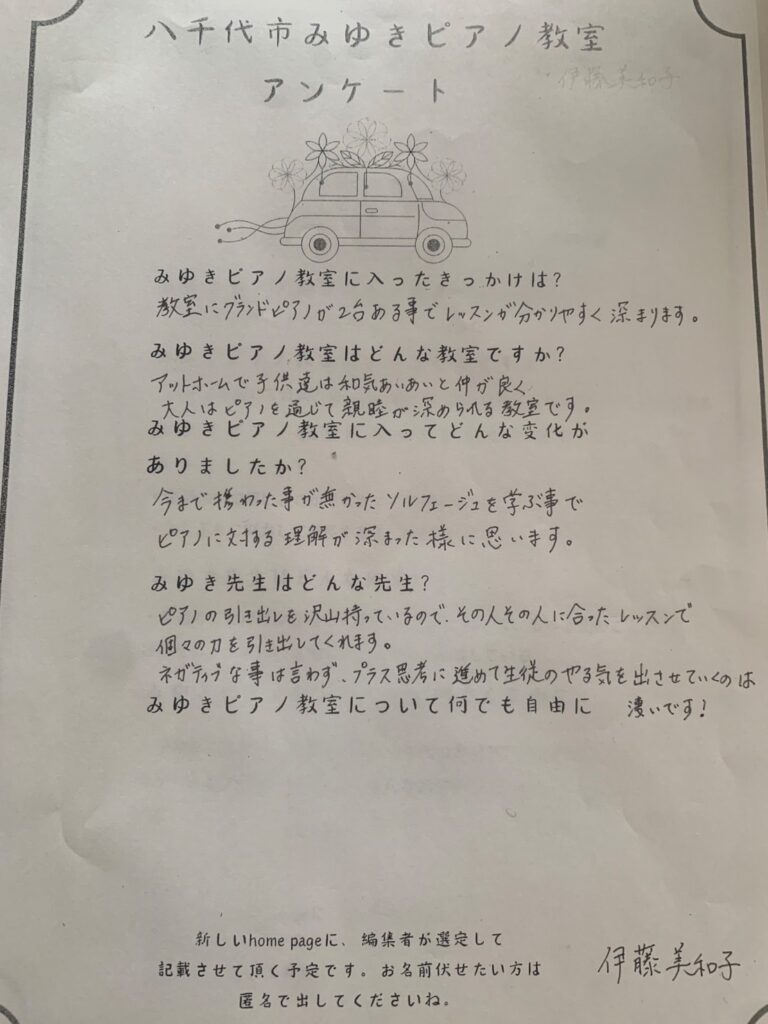 八千代市みゆきピアノ教室
アンケート
伊藤美和子
みゆきピアノ教室に入ったきっかけは?
教室にグランドピアノが2台ある事でレッスンが分かりやすく深まります。
みゆきピアノ教室はどんな教室ですか?
アットホームで子供達は和気あいあいと仲が良く
大人はピアノを通じて親睦が深められる教室です。
みゆきピアノ教室に入ってどんな変化が
ありましたか?
今まで携わった事が無かったソルフェージュを学ぶ事で
ピアノに対する理解が深まった様に思います。
みゆき先生はどんな先生?
ピアノの引き出しを沢山持っているので、その人その人に合ったレッスンで
個々の力を引き出してくれます。
ネガティブな事は言わず、プラス思考に進めて生徒のやる気を出させていくのは
凄いです!
みゆきピアノ教室について何でも自由に
新しいhome pageに、編集者が選定して
記載させて頂く予定です。お名前伏せたい方は
匿名で出してくださいね。
伊藤美和子